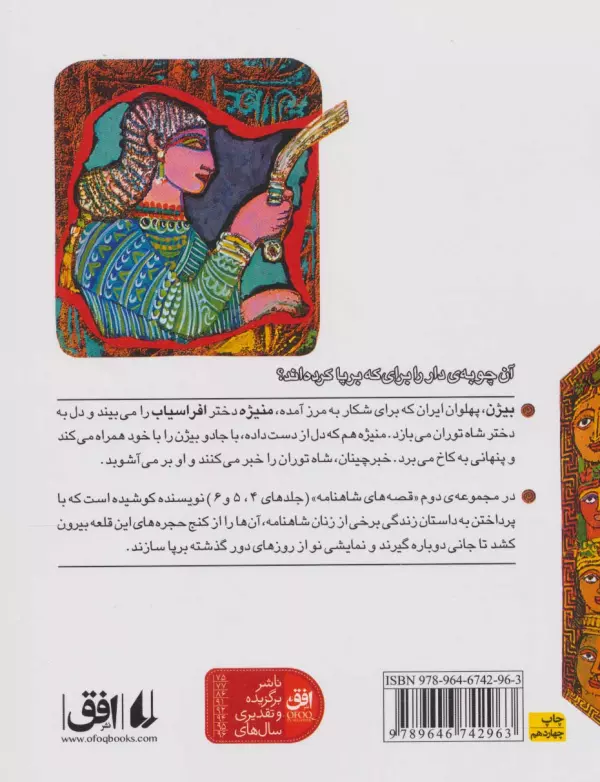 آن چوبه‌ی دار را برای که برپا کرده‌اند؟
بیژن، پهلوان ایران که برای شکار به مرز آمده، منیژه دختر افراسیاب را می‌بیند و دل به
دختر شاه توران می‌بازد. منیژه هم که دل از دست داده، با جادو بیژن را با خود همراه می‌کند
و پنهانی به کاخ می‌برد. خبرچینان، شاه توران را خبر می‌کنند و او بر می‌آشوبد.
در مجموعه‌ی دوم «قصه‌های شاهنامه» (جلدهای ۴، ۵ و ۶) نویسنده کوشیده است که با
پرداختن به داستان زندگی برخی از زنان شاهنامه، آن‌ها را از کنج حجره‌های این قلعه بیرون
کشد تا جانی دوباره گیرند و نمایشی نو از روزهای دور گذشته برپا سازند.
ISBN 978-964-6742-96-3
9 789646 742963
چاپ
چهاردهم
ناشر
برگزیده
و تقدیری
سال‌های
افق
OFOQ
نشر افق
www.ofoqbooks.com